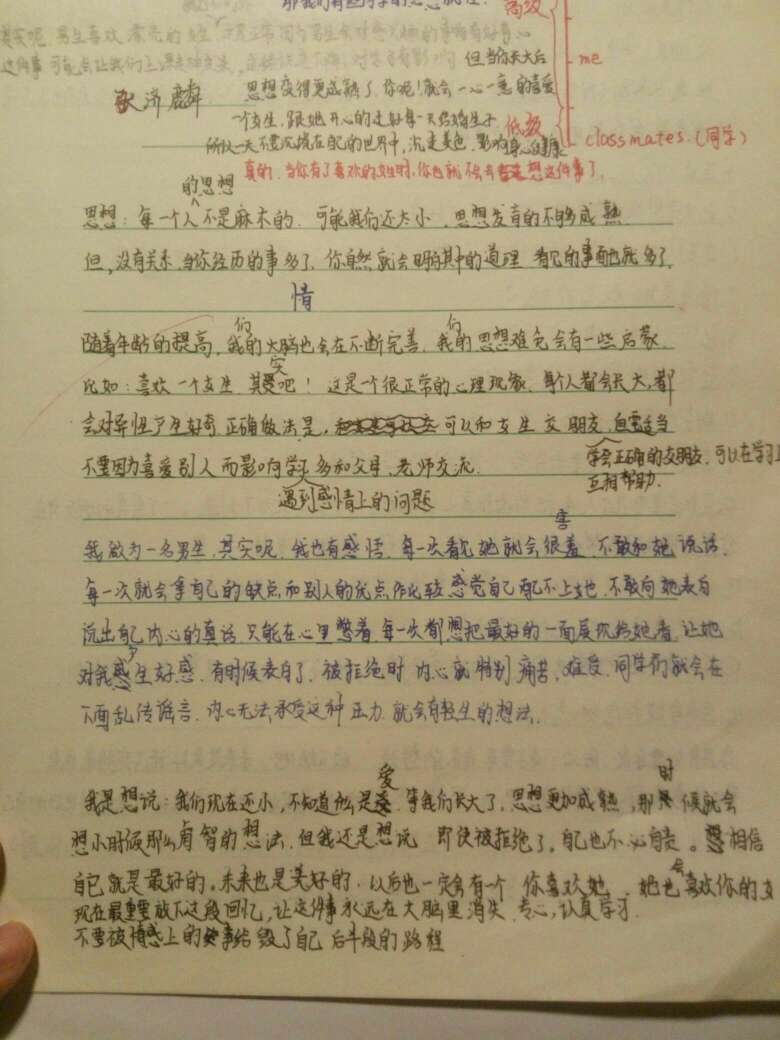 那我们有些同学的思想就在:
高级
me
但当你长大后
思想变得更成熟了,你呢!就会一心一意的喜爱
一个女生,跟她开心的走好每一天
低级
classmates.(同学)
所以一天不要沉浸在自己的世界中,沉迷美色,影响身心健康
真的,当你有了喜欢的女生时,你也就不会去想这件事了.
的思想
思想:每一个人不是麻木的.可能我们还太小,思想发育的不够成熟
但,没有关系,当你经历的事多了,你自然就会明白其中的道理 看见的事面也就多了,
情
随着年龄的提高,我们的大脑也会在不断完善,我们的思想难免会有一些启蒙.
比如:喜欢一个女生,其实吧!这是个很正常的心理现象,每个人都会长大,都
会对异性产生好奇,正确做法是,可以和女生交朋友,但需适当
学会正确的交朋友,可以在学习上
互相帮助.
不要因为喜爱别人而影响学习,多和父母,老师交流.
遇到感情上的问题
我做为一名男生,其实呢,我也有感情,每一次看见她就会很害羞,不敢和她说话,
每一次就会拿自己的缺点和别人的优点作比较,感觉自己配不上她,不敢向她表白
说出自己内心的真话,只能在心里憋着,每一次都想把最好的一面展现给她看,让她
对我产生好感,有时候表白了,被拒绝时 内心就特别痛苦,难受,同学们就会在
下面乱传谣言.内心无法承受这种压力,就会有轻生的想法.
我是想说:我们现在还小,不知道什么是爱,等我们长大了,思想更加成熟,那时候就会
想小时候那么有智的想法.但我还是想说 即使被拒绝了,自己也不必自责。相信
自己就是最好的。未来也是美好的.以后也一定会有一个 你喜欢她,她也会喜欢你的女
现在最重要放下这段回忆,让这件事永远在大脑里消失,专心,认真学习
不要被情感上的事给毁了自己后半段的路程